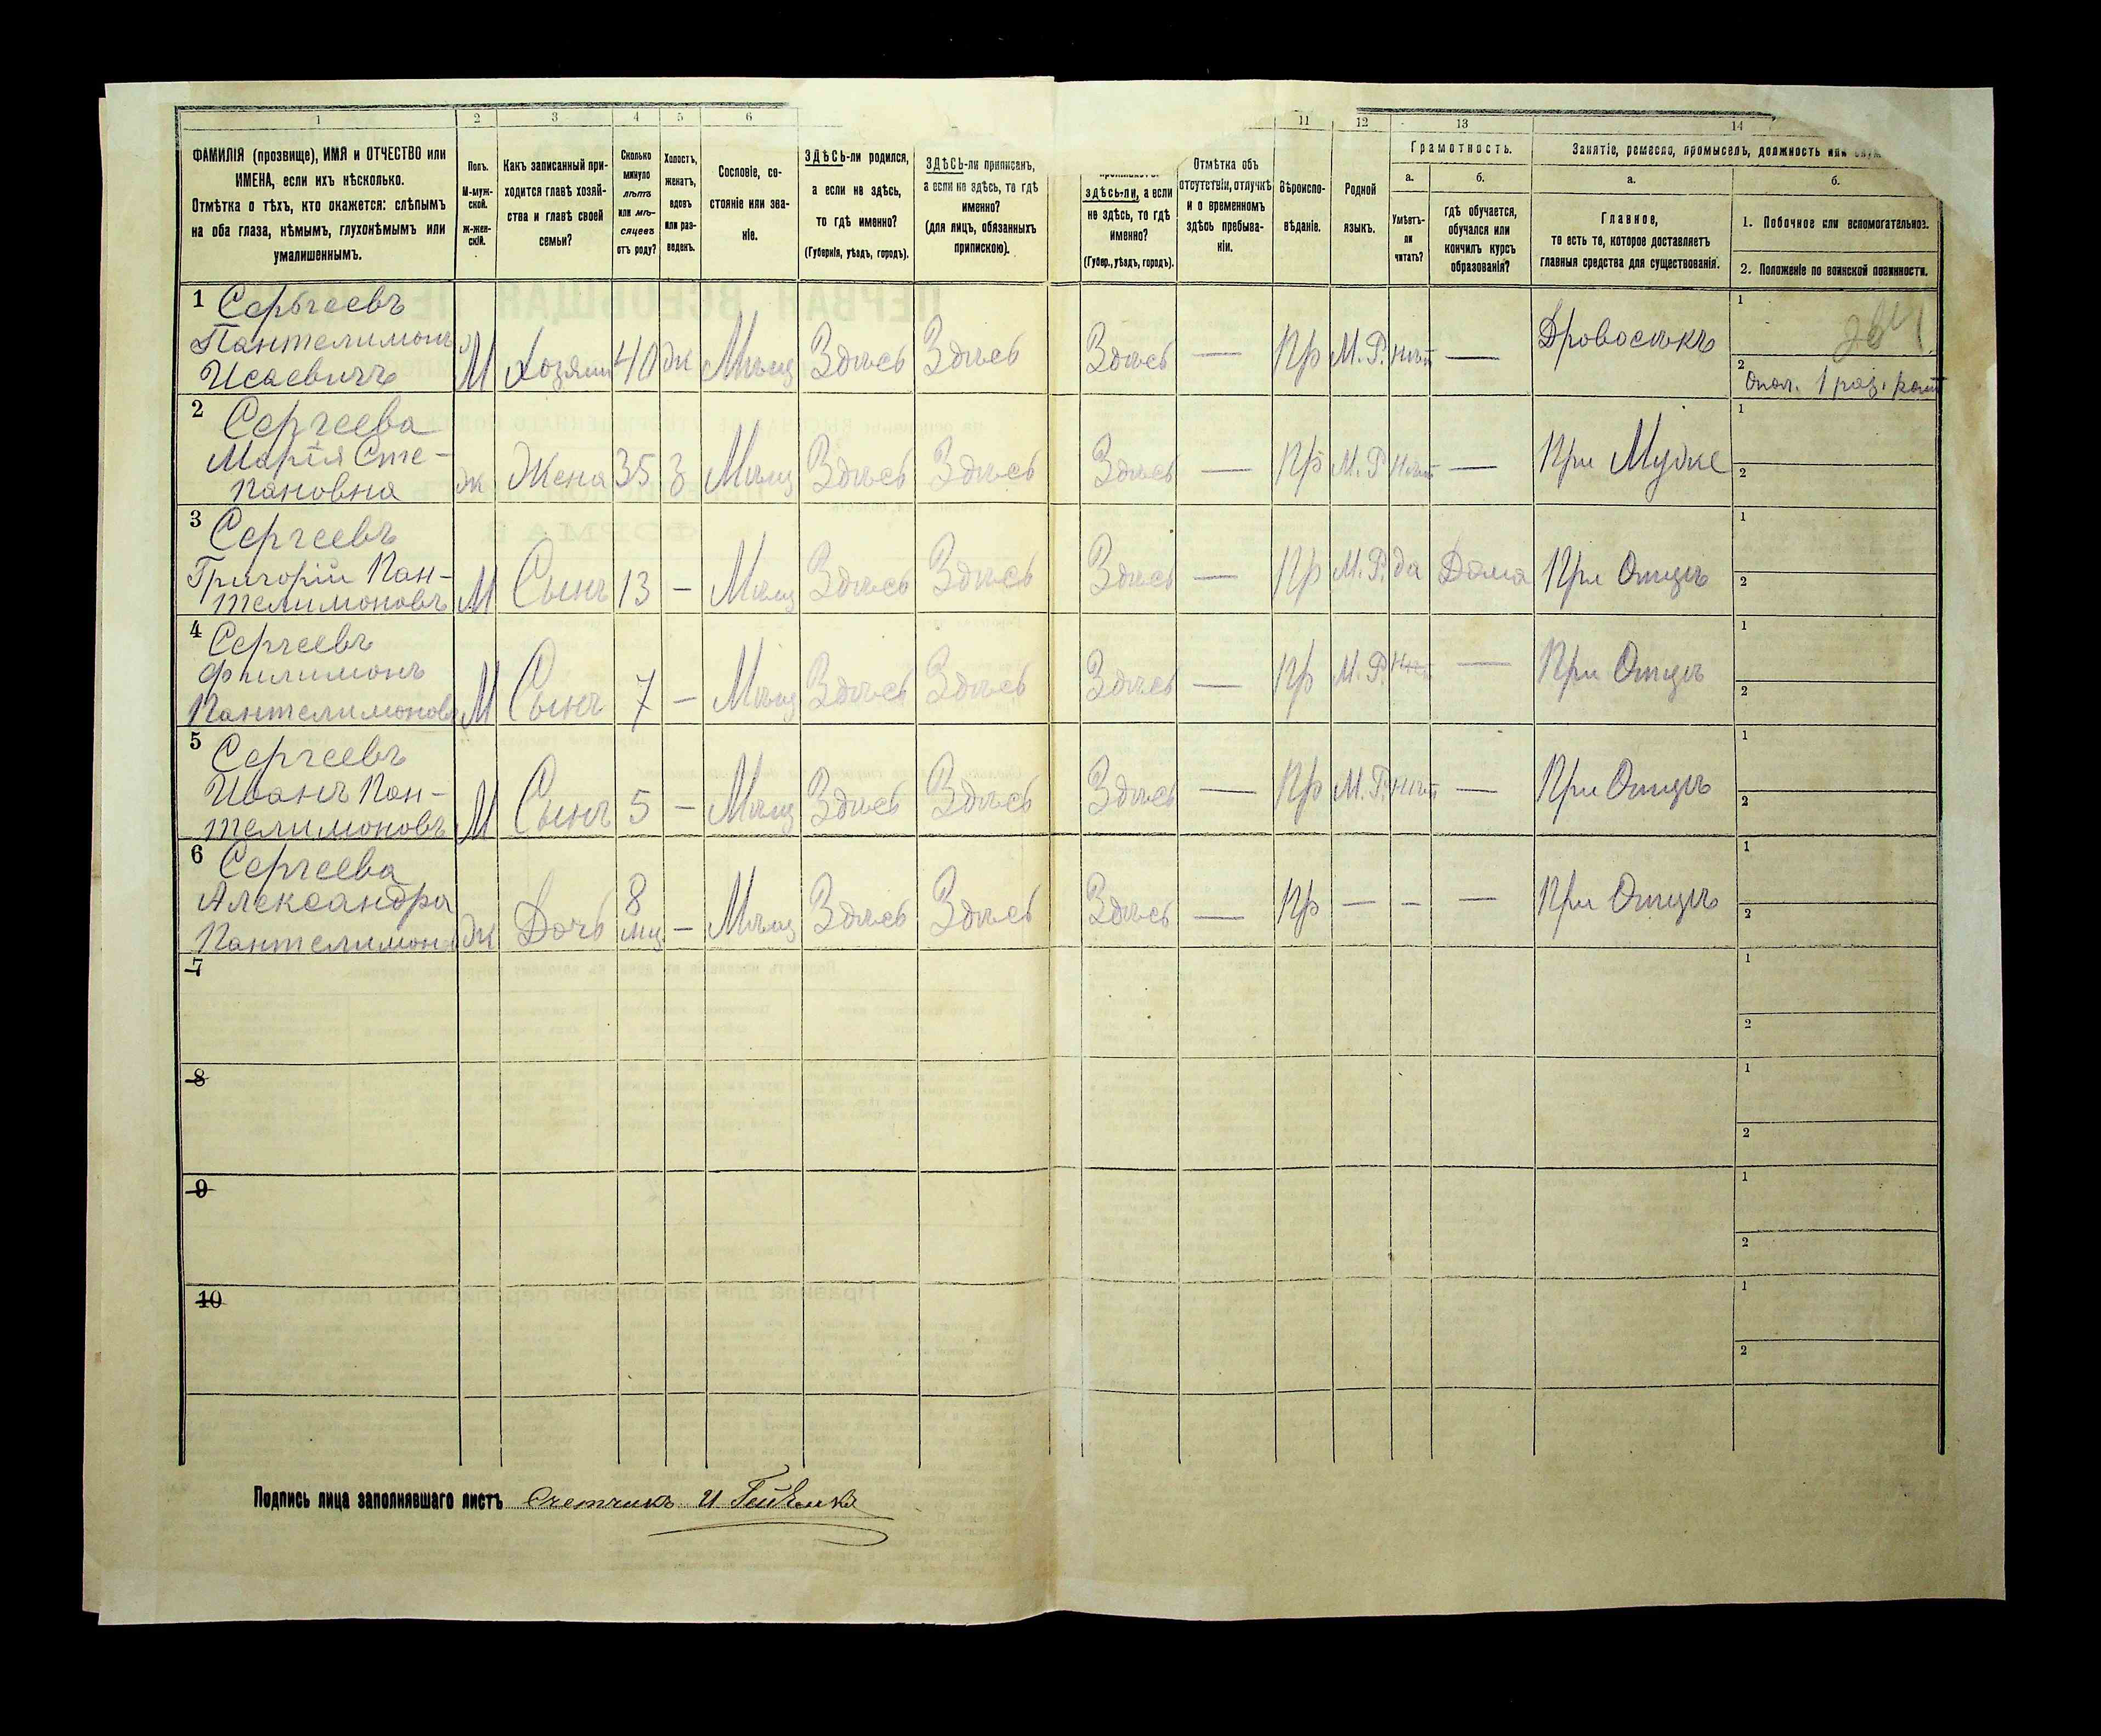 1 2 3 4 5 6 11 12 13 14
ФАМИЛІЯ (прозвище), ИМЯ и ОТЧЕСТВО или
ИМЕНА, если ихъ нѣсколько.
Отмѣтка о тѣхъ, кто окажется: слѣпымъ
на оба глаза, нѣмымъ, глухонѣмымъ или
умалишеннымъ.
Полъ.
М-муж-
ской.
Ж-жен-
скій.
Какъ записанный при-
ходится главѣ хозяй-
ства и главѣ своей
семьи?
Сколько
минуло
лѣтъ
или мѣ-
сяцевъ
отъ роду?
Холостъ,
женатъ,
вдовъ
или раз-
веденъ.
Сословіе, со-
стояніе или зва-
ніе.
ЗДѢСЬ-ли родился,
а если не здѣсь,
то гдѣ именно?
(Губернія, уѣздъ, городъ).
ЗДѢСЬ-ли приписанъ,
а если не здѣсь, то гдѣ
именно?
(для лицъ, обязанныхъ
припискою).
здѣсь-ли, а если
не здѣсь, то гдѣ
именно?
(Губер., уѣздъ, городъ).
Отмѣтка объ
отсутствіи, отлучкѣ
и о временномъ
здѣсь пребыва-
ніи.
Вѣроиспо-
вѣданіе.
Родной
языкъ.
Грамотность.
а.
Умѣетъ-
ли
читать?
б.
гдѣ обучается,
обучался или
кончилъ курсъ
образованія?
Занятіе, ремесло, промыселъ, должность или
а.
Главное,
то есть то, которое доставляетъ
главныя средства для существованія.
б.
1. Побочное или вспомогательное.
2. Положеніе по воинской повинности.
1 Сергеевъ
Пантелимонъ
Исаевичъ
М Хозяинъ 40 ж Мѣщ Здѣсь Здѣсь Здѣсь — Пр М.Р. нѣт — Дровосѣкъ
1
2 Опол. 1 раз.
2 Сергеева
Марія Сте-
пановна
ж Жена 35 З Мѣщ Здѣсь Здѣсь Здѣсь — Пр М.Р нѣт — При Мужѣ
1
2
3 Сергеевъ
Григорій Пан-
телимоновъ
М Сынъ 13 — Мѣщ Здѣсь Здѣсь Здѣсь — Пр М.Р. да Дома При Отцѣ
1
2
4 Сергеевъ
Филимонъ
Пантелимоновъ
М Сынъ 7 — Мѣщ Здѣсь Здѣсь Здѣсь — Пр М.Р. нѣт — При Отцѣ
1
2
5 Сергеевъ
Иванъ Пан-
телимоновъ
М Сынъ 5 — Мѣщ Здѣсь Здѣсь Здѣсь — Пр М.Р. нѣт — При Отцѣ
1
2
6 Сергеева
Александра
Пантелимон
ж Дочь 8 мц — Мѣщ Здѣсь Здѣсь Здѣсь — Пр — — — При Отцѣ
1
2
7
1
2
8
1
2
9
1
2
10
1
2
Подпись лица заполнявшаго листъ Счетчикъ И